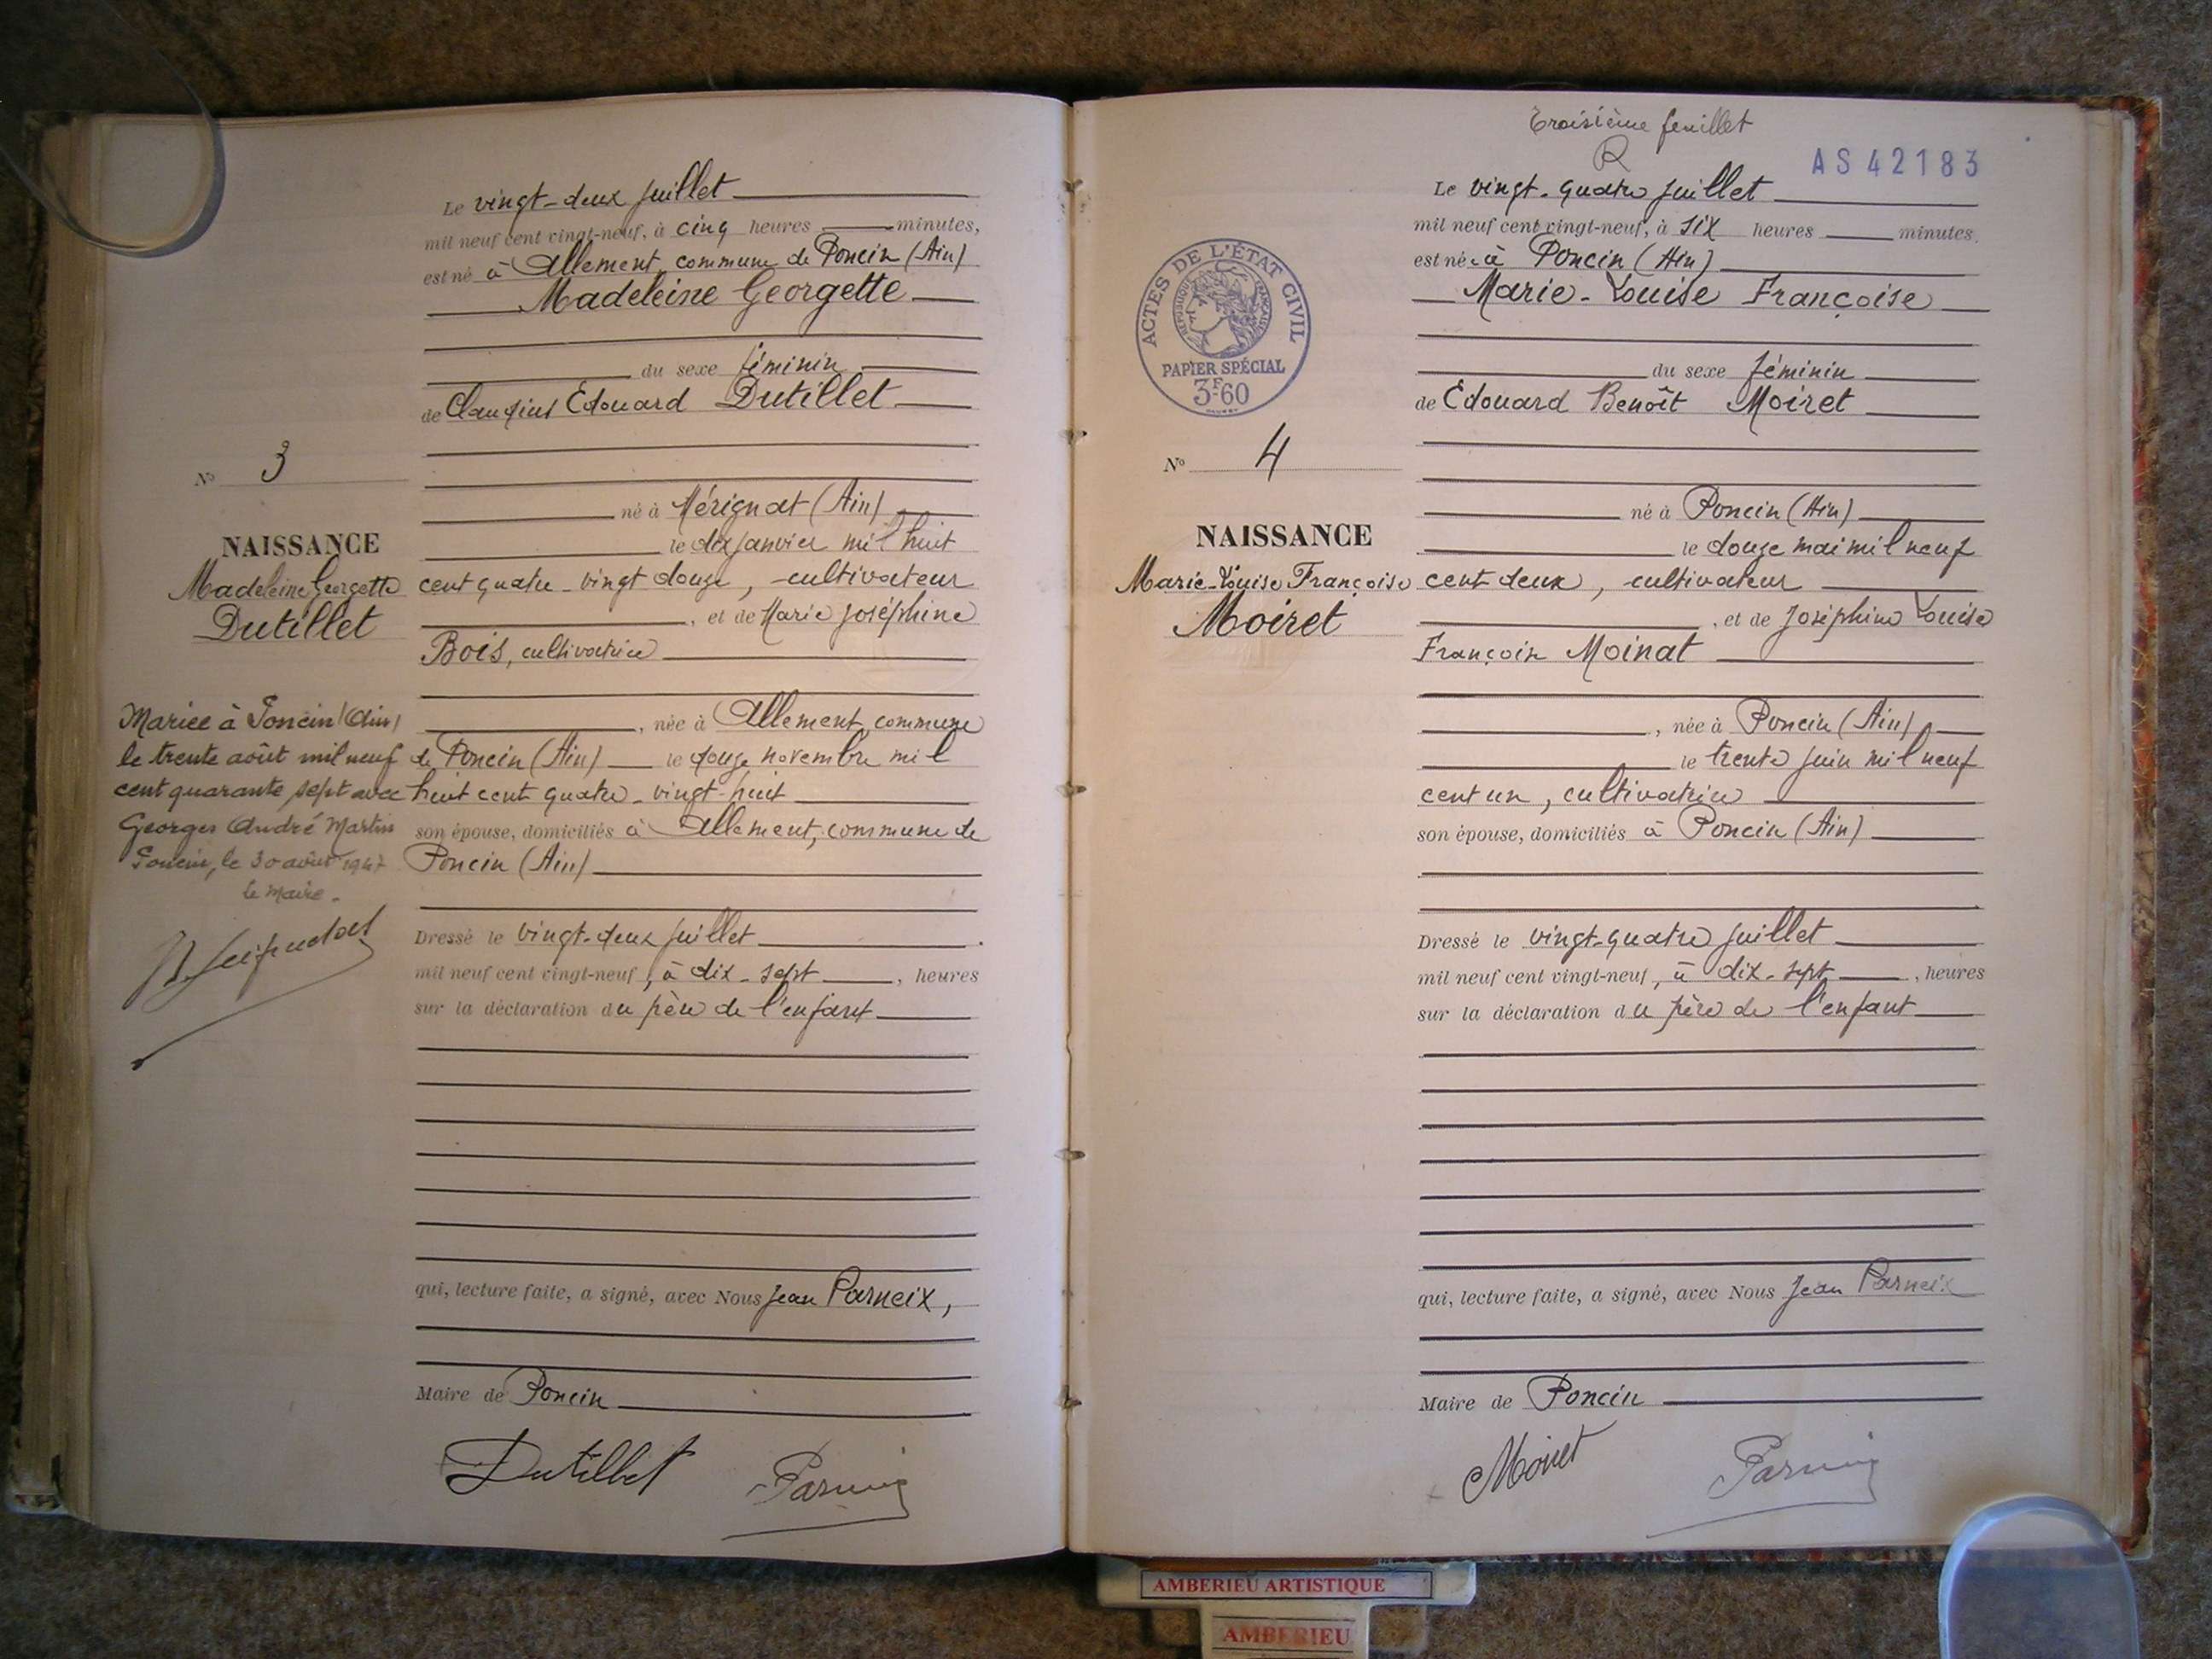 Le vingt-deux juillet
mil neuf cent vingt-neuf, à cinq heures minutes,
est né à Allement, commune de Poncin (Ain)
Madeleine Georgette
du sexe féminin
de Claudius Edouard Dutillet
N° 3
né à Mérignat (Ain)
NAISSANCE
le dix janvier mil huit
Madeleine Georgette
cent quatre-vingt douze, cultivateur
Dutillet
, et de Marie Joséphine
Bois, cultivatrice
Mariée à Poncin (Ain)
le trente août mil neuf
cent quarante sept avec
Georges André Martin
Poncin, le 30 août 1947
le Maire.
, née à Allement, commune
de Poncin (Ain) le douze novembre mil
huit cent quatre-vingt-huit
son épouse, domiciliés à Allement, commune de
Poncin (Ain)
Dressé le vingt-deux juillet
mil neuf cent vingt-neuf, à dix-sept, heures
sur la déclaration du père de l'enfant
qui, lecture faite, a signé, avec Nous Jean Parneix,
Maire de Poncin
Dutillet
Troisième feuillet
AS 42183
Le vingt-quatre juillet
mil neuf cent vingt-neuf, à six heures minutes.
est né à Poncin (Ain)
Marie-Louise Françoise
du sexe féminin
de Edouard Benoît Moiret
ACTES DE L'ÉTAT CIVIL
RÉPUBLIQUE FRANÇAISE
PAPIER SPÉCIAL
3F60
N° 4
né à Poncin (Ain)
NAISSANCE
le douze mai mil neuf
Marie-Louise Françoise
cent deux, cultivateur
Moiret
, et de Joséphine Louise
Françoise Moinat
, née à Poncin (Ain)
le trente juin mil neuf
cent un, cultivatrice
son épouse, domiciliés à Poncin (Ain)
Dressé le vingt-quatre juillet
mil neuf cent vingt-neuf, à dix-sept, heures
sur la déclaration du père de l'enfant
qui, lecture faite, a signé, avec Nous Jean Parneix
Maire de Poncin
Moiret
AMBERIEU ARTISTIQUE
AMBERIEU